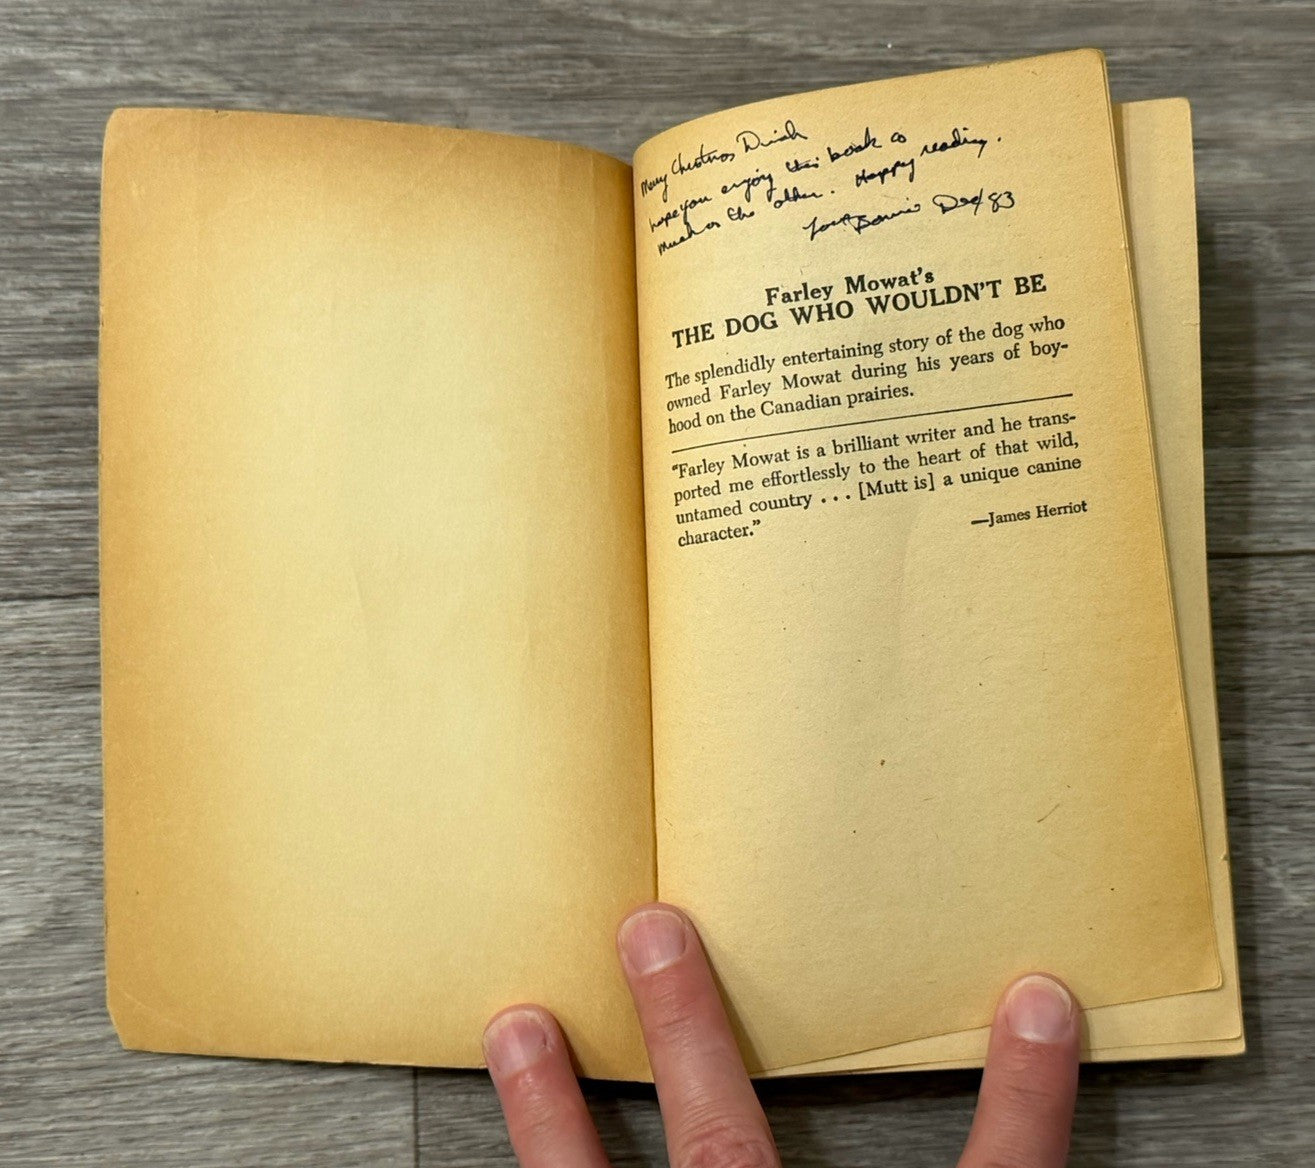 Merry Christmas
hope you enjoy this book as
much as the other. Happy reading.
Bonnie Dec/83
Farley Mowat's
THE DOG WHO WOULDN'T BE
The splendidly entertaining story of the dog who
owned Farley Mowat during his years of boy-
hood on the Canadian prairies.
"Farley Mowat is a brilliant writer and he trans-
ported me effortlessly to the heart of that wild,
untamed country . . . [Mutt is] a unique canine
character."
—James Herriot